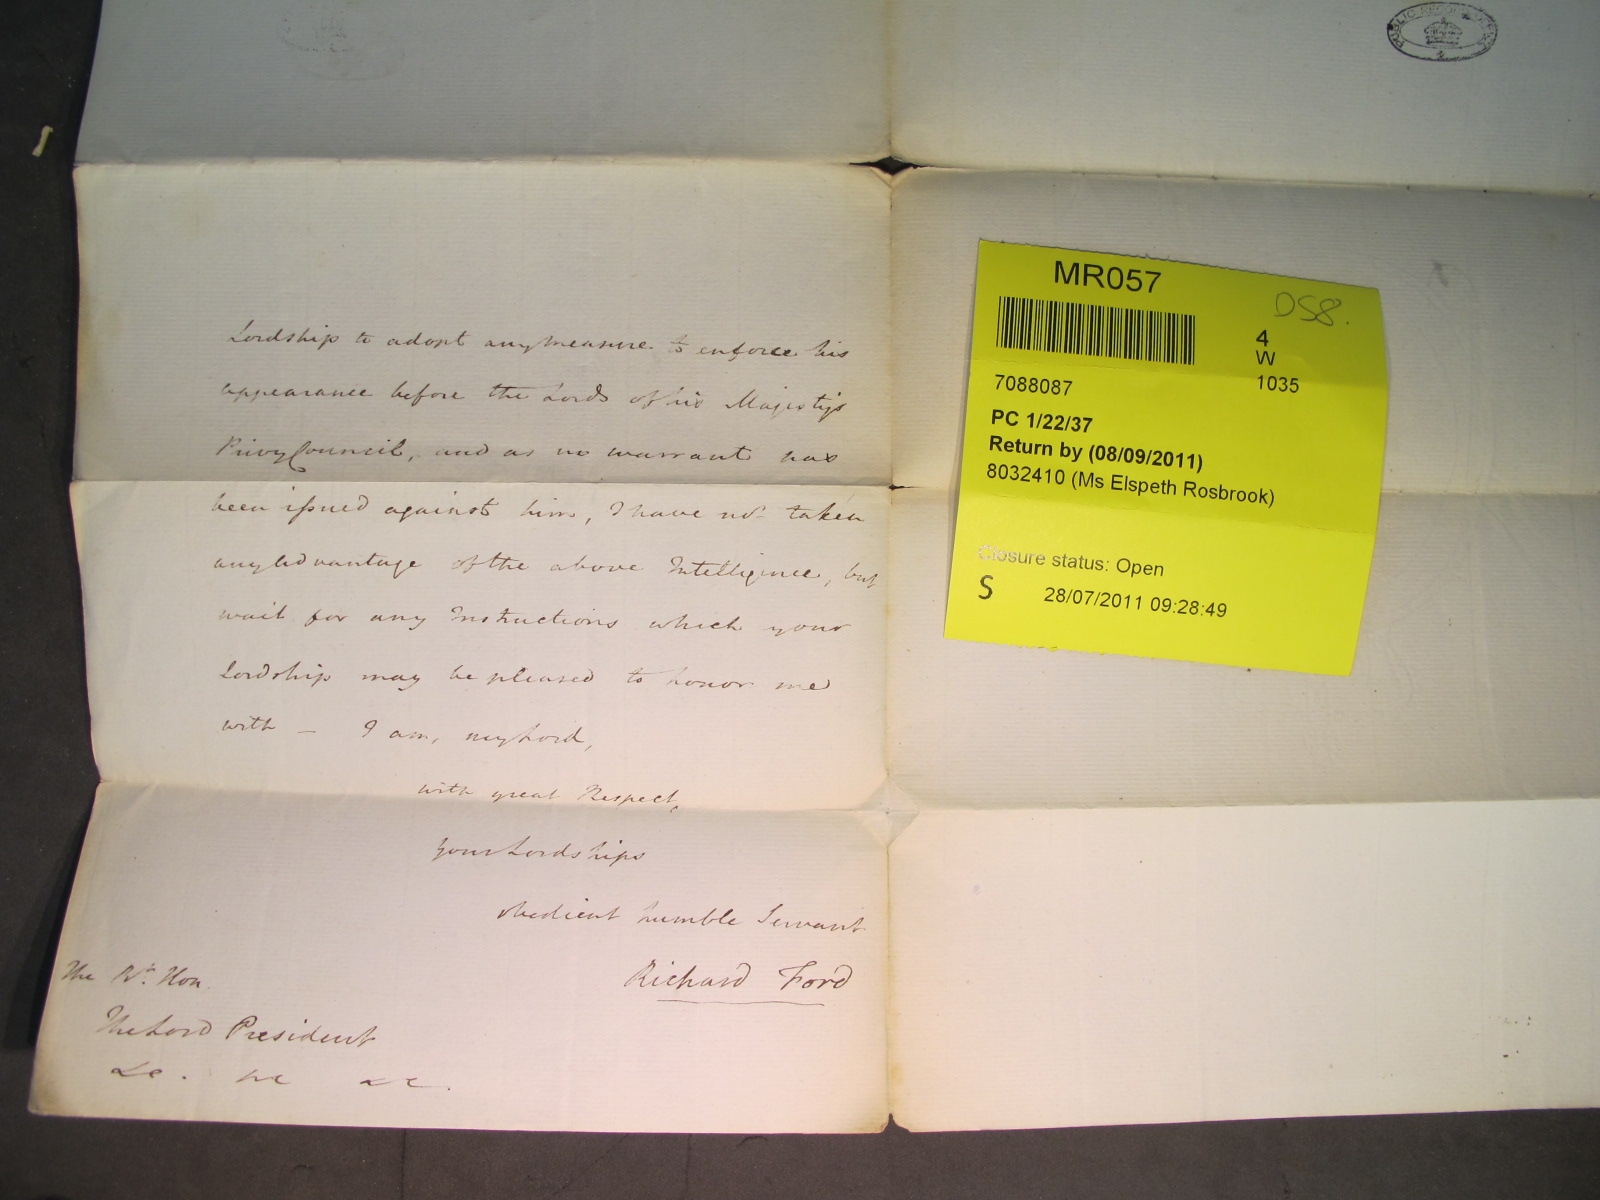 PUBLIC RECORD OFFICE
Lordship to adopt any measure to enforce his
appearance before the Lords of his Majesty's
Privy Council, and as no warrant has
been issued against him, I have not taken
any advantage of the above Intelligence, but
wait for any Instructions which your
Lordship may be pleased to honor me
with — I am, my Lord,
with great Respect,
Your Lordships
obedient humble Servant
Richard Ford
The Rt. Hon
The Lord President
&c. &c &c.
MR057
DS8.
4
W
7088087 1035
PC 1/22/37
Return by (08/09/2011)
8032410 (Ms Elspeth Rosbrook)
Closure status: Open
S 28/07/2011 09:28:49